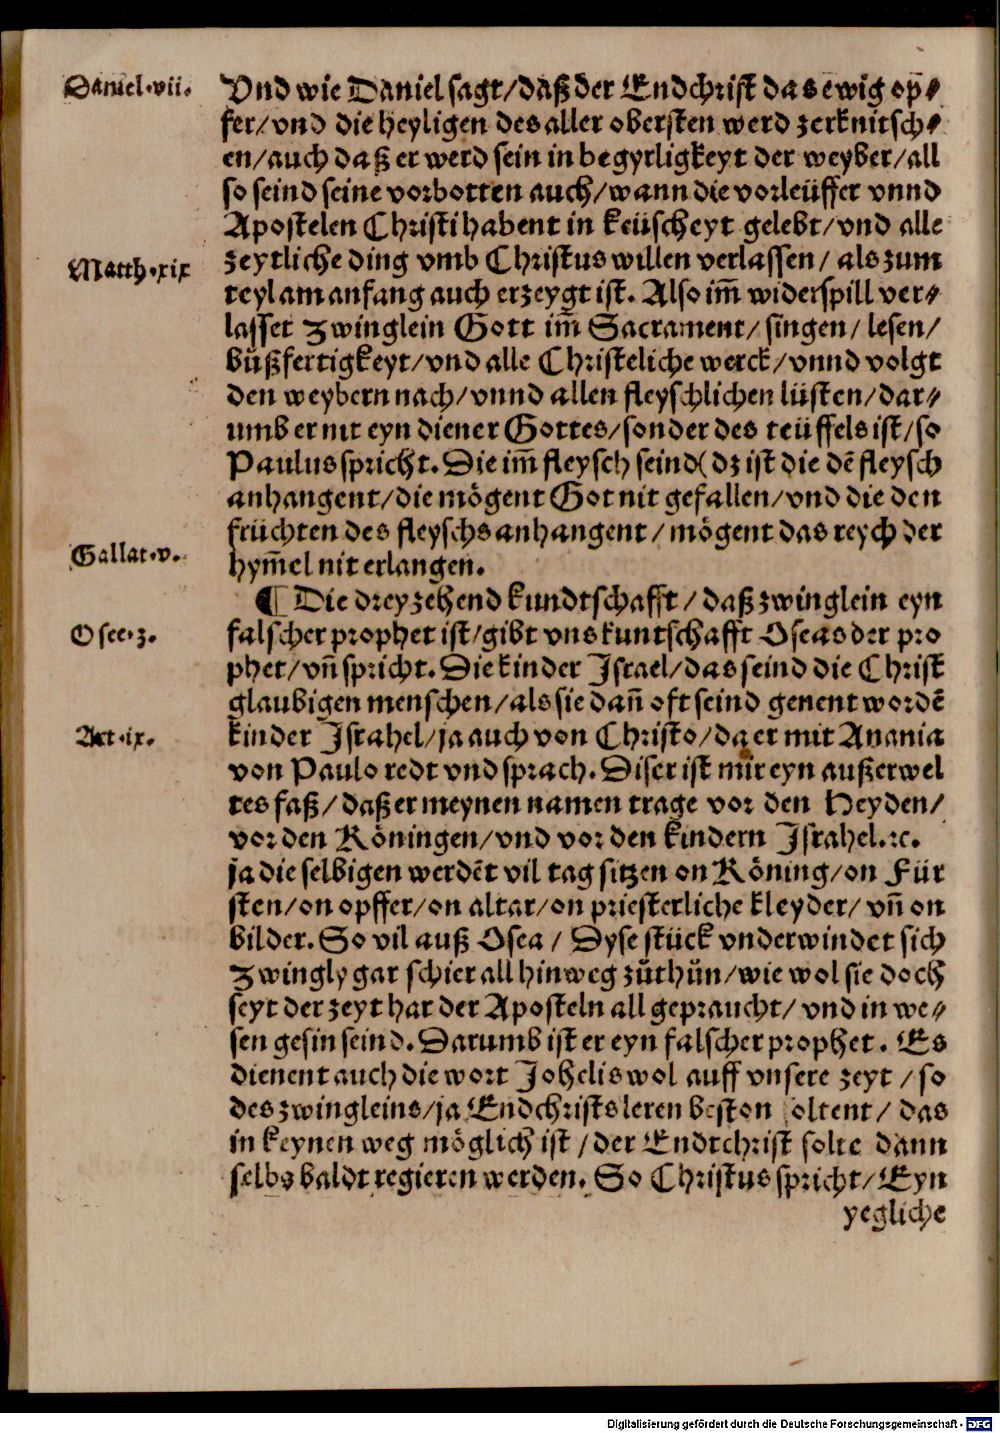 Daniel.vii.
Vnd wie Daniel sagt/daß der Endchrist das ewig op⸗
fer/vnd die heyligen des aller obersten werd zerknitsch⸗
en/auch daß er werd sein in begyrligkeyt der weyber/all
so seind seine vorbotten auch/wann die vorleüffer vnnd
Apostelen Christi habent in keüscheyt gelebt/vnd alle
Matth.xix
zeytliche ding vmb Christus willen verlassen/ als zum
teyl am anfang auch erzeygt ist. Also im̃ widerspill ver⸗
lasset Zwinglein Gott im̃ Sacrament/ singen/ lesen/
bůßfertigkeyt/vnd alle Christeliche werck/vnnd volgt
den weybern nach/vnnd allen fleyschlichen lüsten/dar⸗
umb er nit eyn diener Gottes/sonder des teüffels ist/so
Paulus spricht. Die im̃ fleysch seind(dz ist die dē fleysch
anhangent/die mögent Got nit gefallen/vnd die den
früchten des fleyschs anhangent/mögent das reych der
Gallat.v.
hym̃el nit erlangen.
¶ Die dreyzehend kundtschafft/daß zwinglein eyn
Osee.3.
falscher prophet ist/gibt vns kuntschafft Oseas der pro
phet/vñ spricht. Die kinder Israel/das seind die Christ
glaubigen menschen/als sie dañ oft seind genent wordē
Act.ix.
kinder Israhel/ja auch von Christo/da er mit Anania
von Paulo redt vnd sprach. Diser ist mir eyn außerwel
tes faß/daß er meynen namen trage vor den Heyden/
vor den Köningen/vnd vor den kindern Israhel.ꝛc.
ja die selbigen werdēt vil tag sitzen on Köning/on Für
sten/on opffer/on altar/on priesterliche kleyder/ vñ on
bilder. So vil auß Osea/ Dyse stück vnderwindet sich
Zwingly gar schier all hinweg zůthůn/wie wol sie doch
seyt der zeyt har der Aposteln all gepraucht/ vnd in we⸗
sen gesin seind. Darumb ist er eyn falscher prophet. Es
dienent auch die wort Johelis wol auff vnsere zeyt/so
des zwingleins/ja Endchrists leren beston oltent/ das
in keynen weg möglich ist/der Endtchrist solte dann
selbs baldt regieren werden. So Christus spricht/Eyn
yegliche
Digitalisierung gefördert durch die Deutsche Forschungsgemeinschaft - DFG